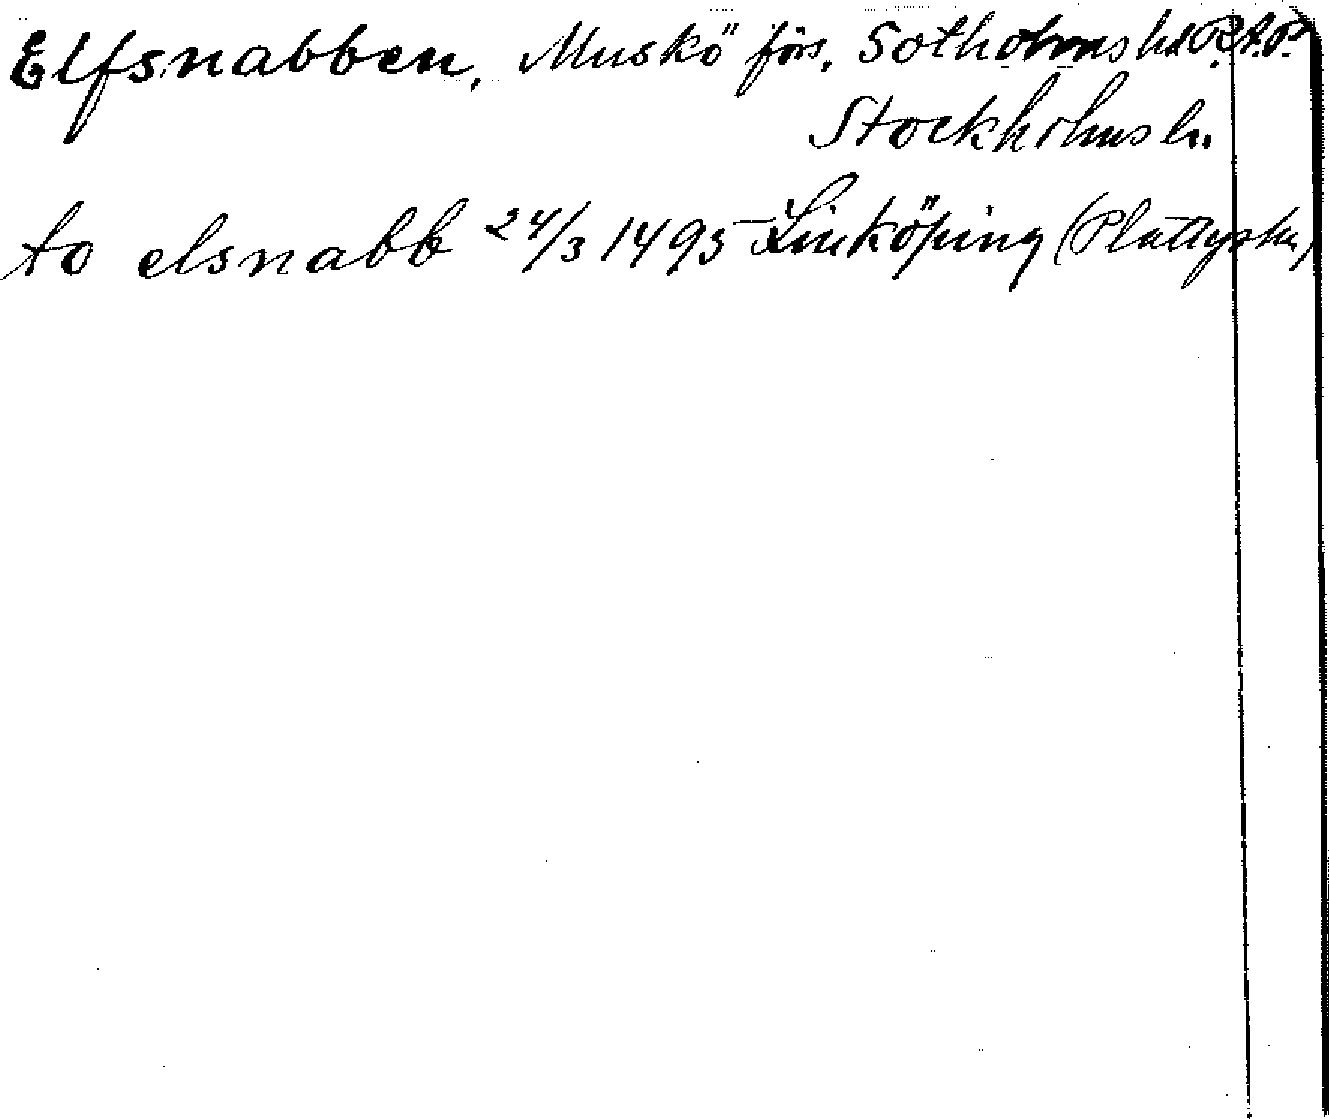 Elfsnabben, Muskö förs. Sotholms hd R.A.P.
Stockholms l.
to elsnabb 24/3 1495 Linköping (Plattyska)